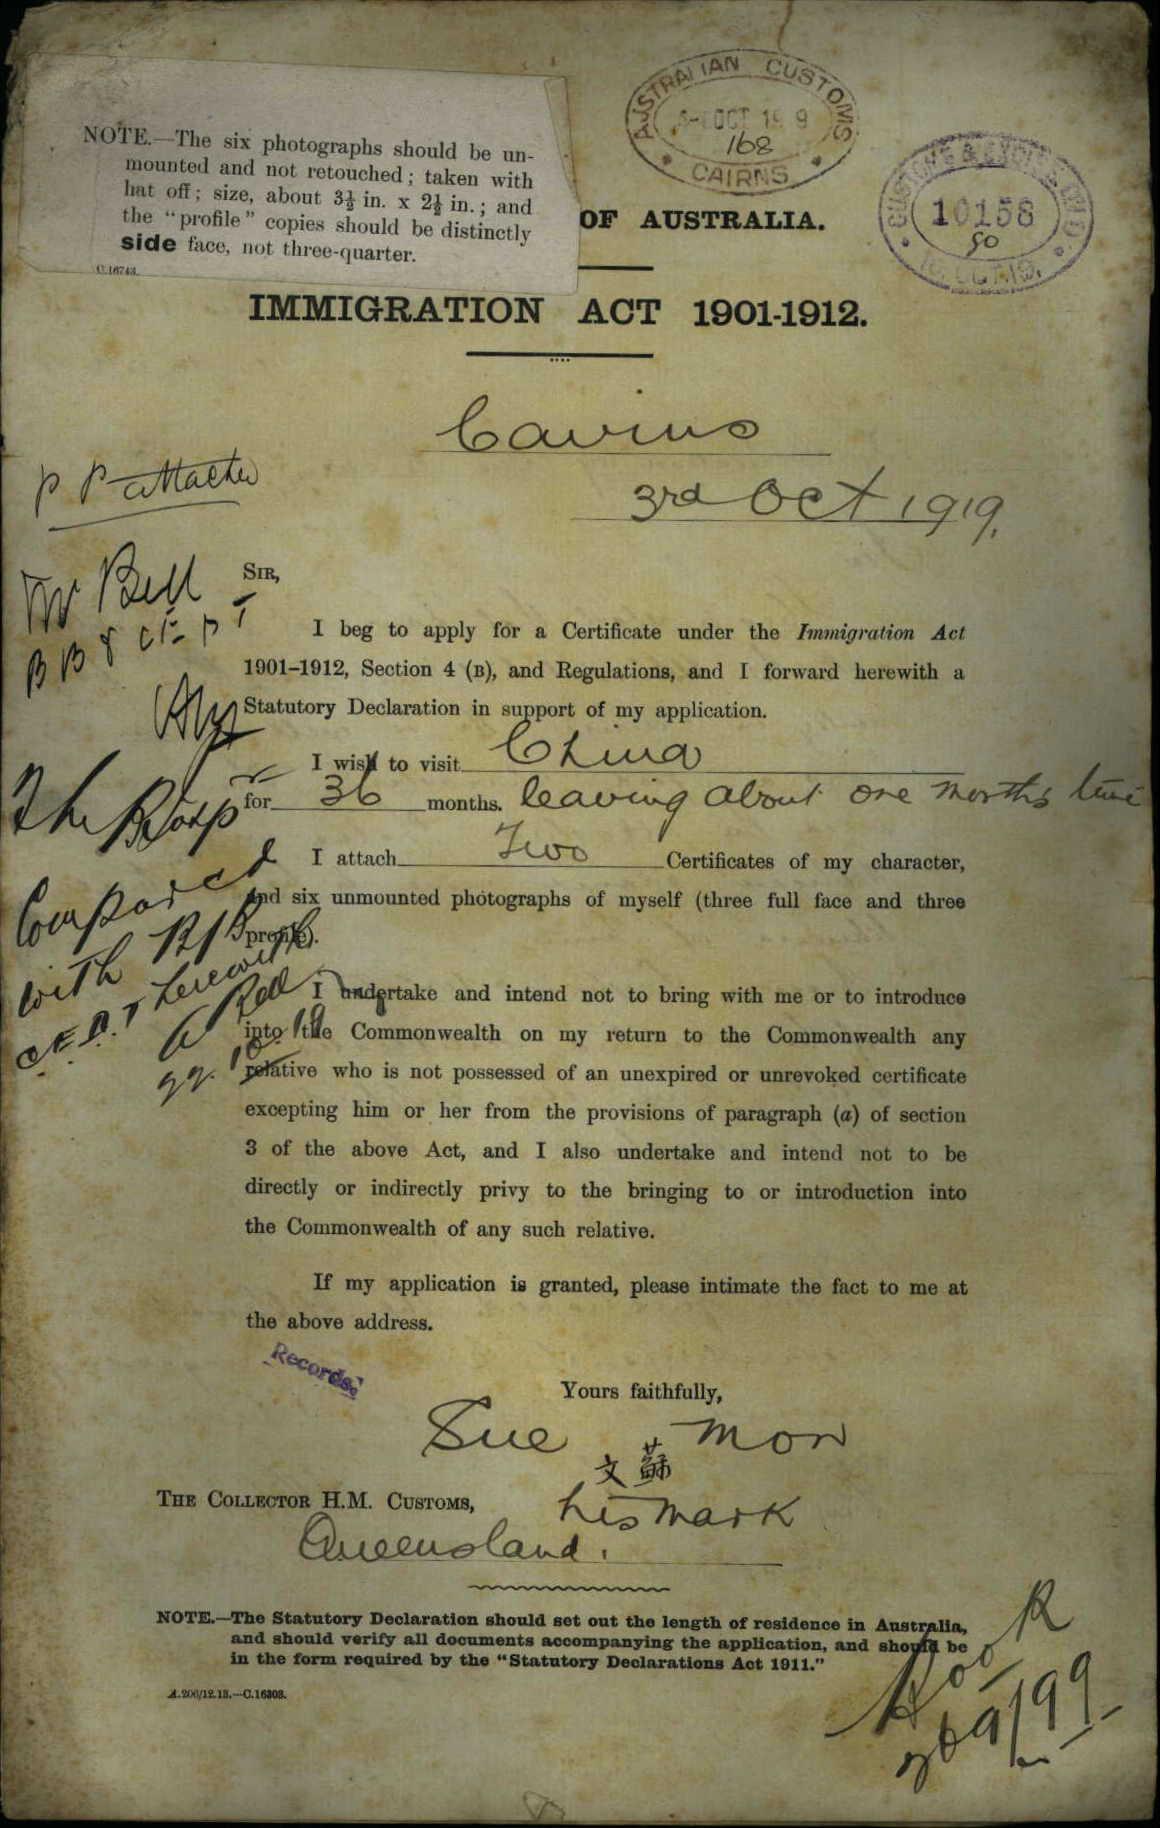 NOTE.—The six photographs should be un-
mounted and not retouched; taken with
hat off; size, about 3½ in. x 2½ in.; and
the "profile" copies should be distinctly
side face, not three-quarter.
C.16743.
AUSTRALIAN CUSTOMS
OCT 19 9
168
CAIRNS
CUSTOMS & EXCISE
10158
50
OCT. 19.
OF AUSTRALIA.
IMMIGRATION ACT 1901-1912.
Cairns
3rd Oct 1919.
P P attached
Mr Bell
SIR,
I beg to apply for a Certificate under the Immigration Act
1901-1912, Section 4 (B), and Regulations, and I forward herewith a
Statutory Declaration in support of my application.
I wish to visit China
for 36 months. leaving about one months time
I attach Two Certificates of my character,
and six unmounted photographs of myself (three full face and three
profile).
Compared
with
herewith
Bell
I undertake and intend not to bring with me or to introduce
into the Commonwealth on my return to the Commonwealth any
relative who is not possessed of an unexpired or unrevoked certificate
excepting him or her from the provisions of paragraph (a) of section
3 of the above Act, and I also undertake and intend not to be
directly or indirectly privy to the bringing to or introduction into
the Commonwealth of any such relative.
If my application is granted, please intimate the fact to me at
the above address.
Records.
Yours faithfully,
Sue Mon
文蘇
his mark
THE COLLECTOR H.M. CUSTOMS,
Queensland.
NOTE.—The Statutory Declaration should set out the length of residence in Australia,
and should verify all documents accompanying the application, and should be
in the form required by the "Statutory Declarations Act 1911."
A.206/12.13.—C.16303.
Book
269/99